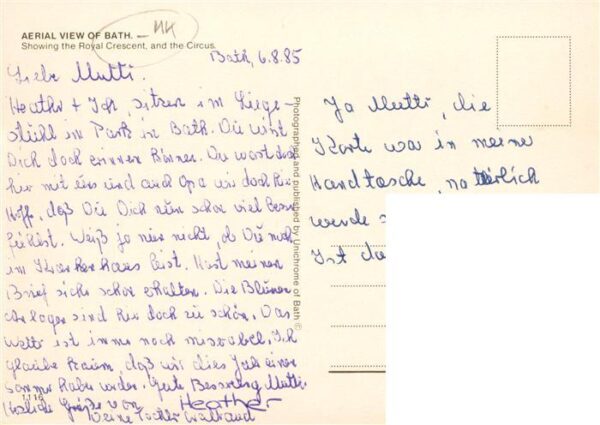 AERIAL VIEW OF BATH. HH
Showing the Royal Crescent, and the Circus.
Bath, 6.8.85
Liebe Mutti.
Heather + Ich, sitzen im Liege-
stühl im Park in Bath. Du wirst
Dich doch erinnern können. Du warst doch
hier mit uns und auch Opa
Hoffe, daß Du Dich nun schon viel besser
fühlst. Weiß ja nur nicht, ob Du noch
im Krankenhaus bist. Hast meinen
Brief sicher schon erhalten. Die Blumen
Anlagen sind hier doch zu schön. Das
Wetter ist immer noch miserabel. Ich
glaube kaum, daß wir dies Jahr einen
Sommer haben werden. Gute Besserung Mutti.
Herzliche Grüße von Heather
Deine Tochter Waltraud
1116
Photographed and published by Unichrome of Bath ©
Ja Mutti, die
Karte war in meiner
Handtasche, natürlich
werde
Ist